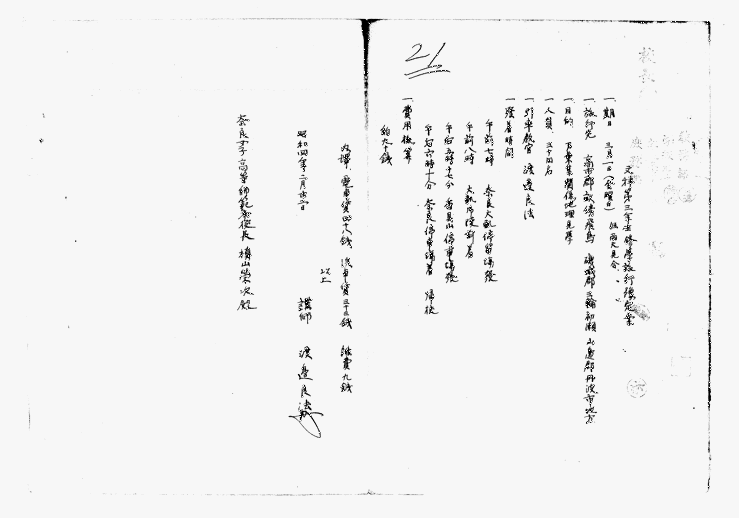 21
文科第三年生修学旅行豫定案
一期日 三月一日(金曜日) 但雨天見合
一旅行先 高市郡畝傍飛鳥 磯城郡三輪初瀬 山邊郡丹波市地方
一目的 万葉集関係地理見学
一人員 三十四名
一引率教官 渡邊良法
一發着時間
午前七時 奈良大軌停留場發
午前八時 大軌
午后五時十七分 香具山停車場發
午后六時十分 奈良停車場着 帰校
一費用概算
約九十錢
内譯 電車賃四十八錢 汽車賃三十三錢 雜費九錢
以上
昭和四年二月廿六日
講師 渡邊良法
奈良女子高等師範學校長 槇山榮次殿